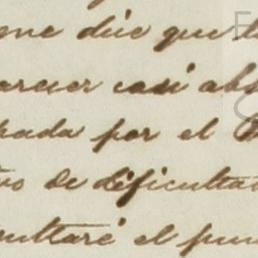 me dice que l
arecer casi abs
pada por el
vo de dificulta
sultaré el pun